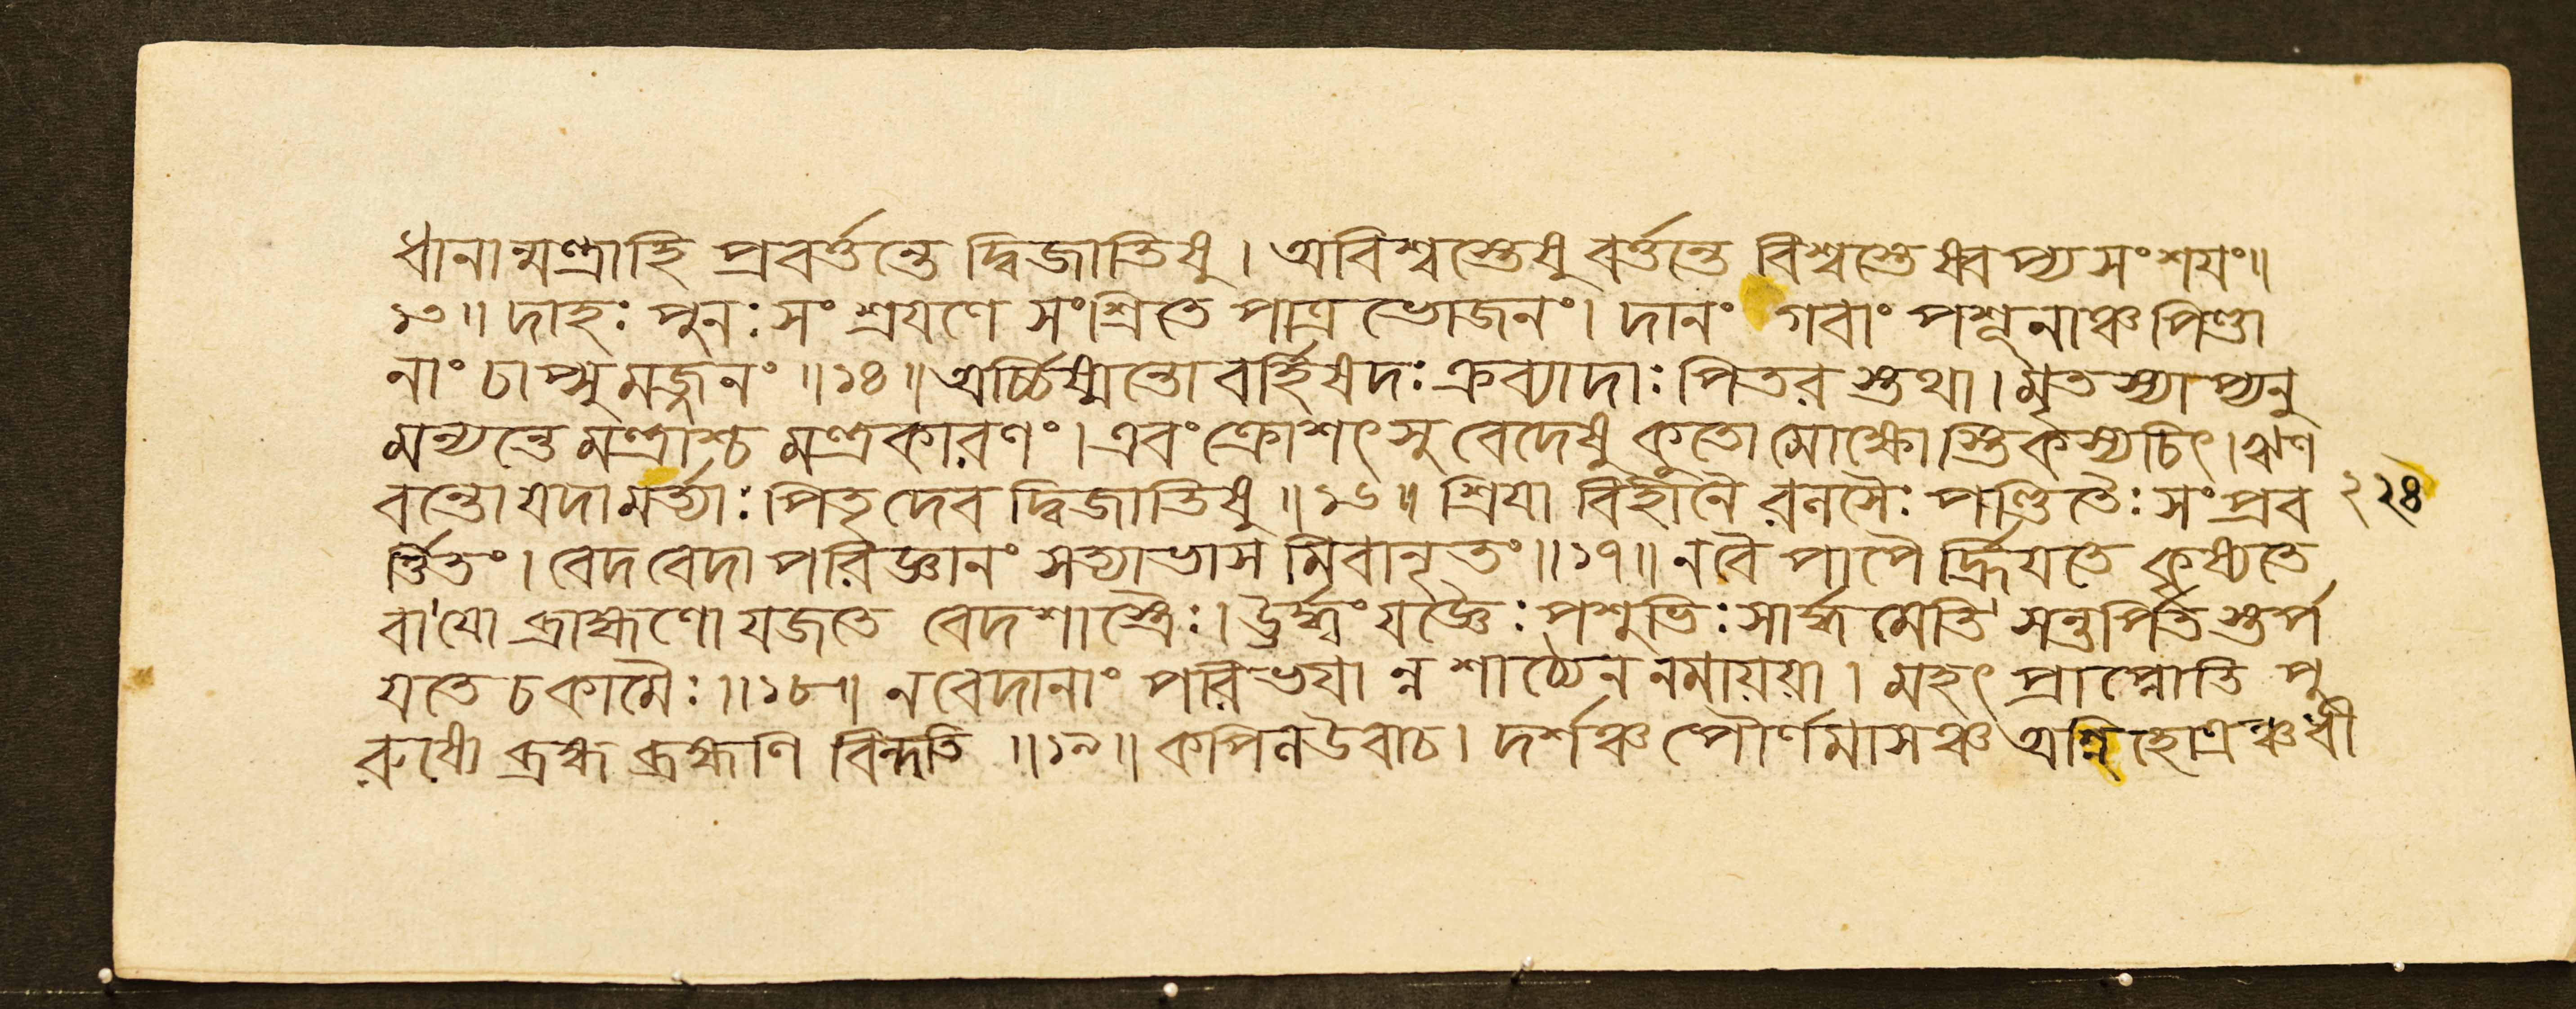 ধানান্মন্ত্রাহি প্রবর্ত্তন্তে দ্বিজাতিষু। অবিশ্বস্তেষু বর্ত্তন্তে বিশ্বস্তেষ্বপ্যসংশযঃ॥
১৩॥ দাহঃ পুনঃ সংশ্রযণে সংশ্রিতে পাত্রভোজনং। দানং গবাং পশূনাঞ্চ পিণ্ডা
নাং চাপ্সু মজ্জনং॥১৪॥ অর্চ্চিষ্মন্তো বর্হিষদঃ ক্রব্যাদাঃ পিতরস্তথা। মৃতস্যাপ্যনু
মন্যন্তে মন্ত্রাশ্চ মন্ত্রকারণং। এবং ক্রোশৎসু বেদেষু কুতো মোক্ষোস্তি কস্যচিৎ। ঋণ
বন্তো যদা মর্ত্যাঃ পিতৃদেবদ্বিজাতিষু॥১৬॥ শ্রিযা বিহীনৈ রলসৈঃ পণ্ডিতৈঃ সংপ্রব ২২৪
র্ত্তিতং। বেদবেদা পরিজ্ঞানং সত্যাভাস মিবানৃতং॥১৭॥ ন বৈ পাপৈর্হ্রিযতে কৃষ্যতে
বা যো ব্রাহ্মণো যজতে বেদশাস্ত্রৈঃ। ঊর্দ্ধ্বং যজ্ঞৈঃ পশুভিঃ সার্দ্ধমেতি সন্তর্পিতস্তর্প
যতে চ কামৈঃ॥১৮॥ ন বেদানাং পরিভযান্ন শাঠ্যেন ন মায়য়া। মহৎ প্রাপ্নোতি পু
রুষো ব্রহ্ম ব্রহ্মণি বিন্দতি॥১৯॥ কপিল উবাচ। দর্শঞ্চ পৌর্ণমাসঞ্চ অগ্নিহোত্রঞ্চ ধী